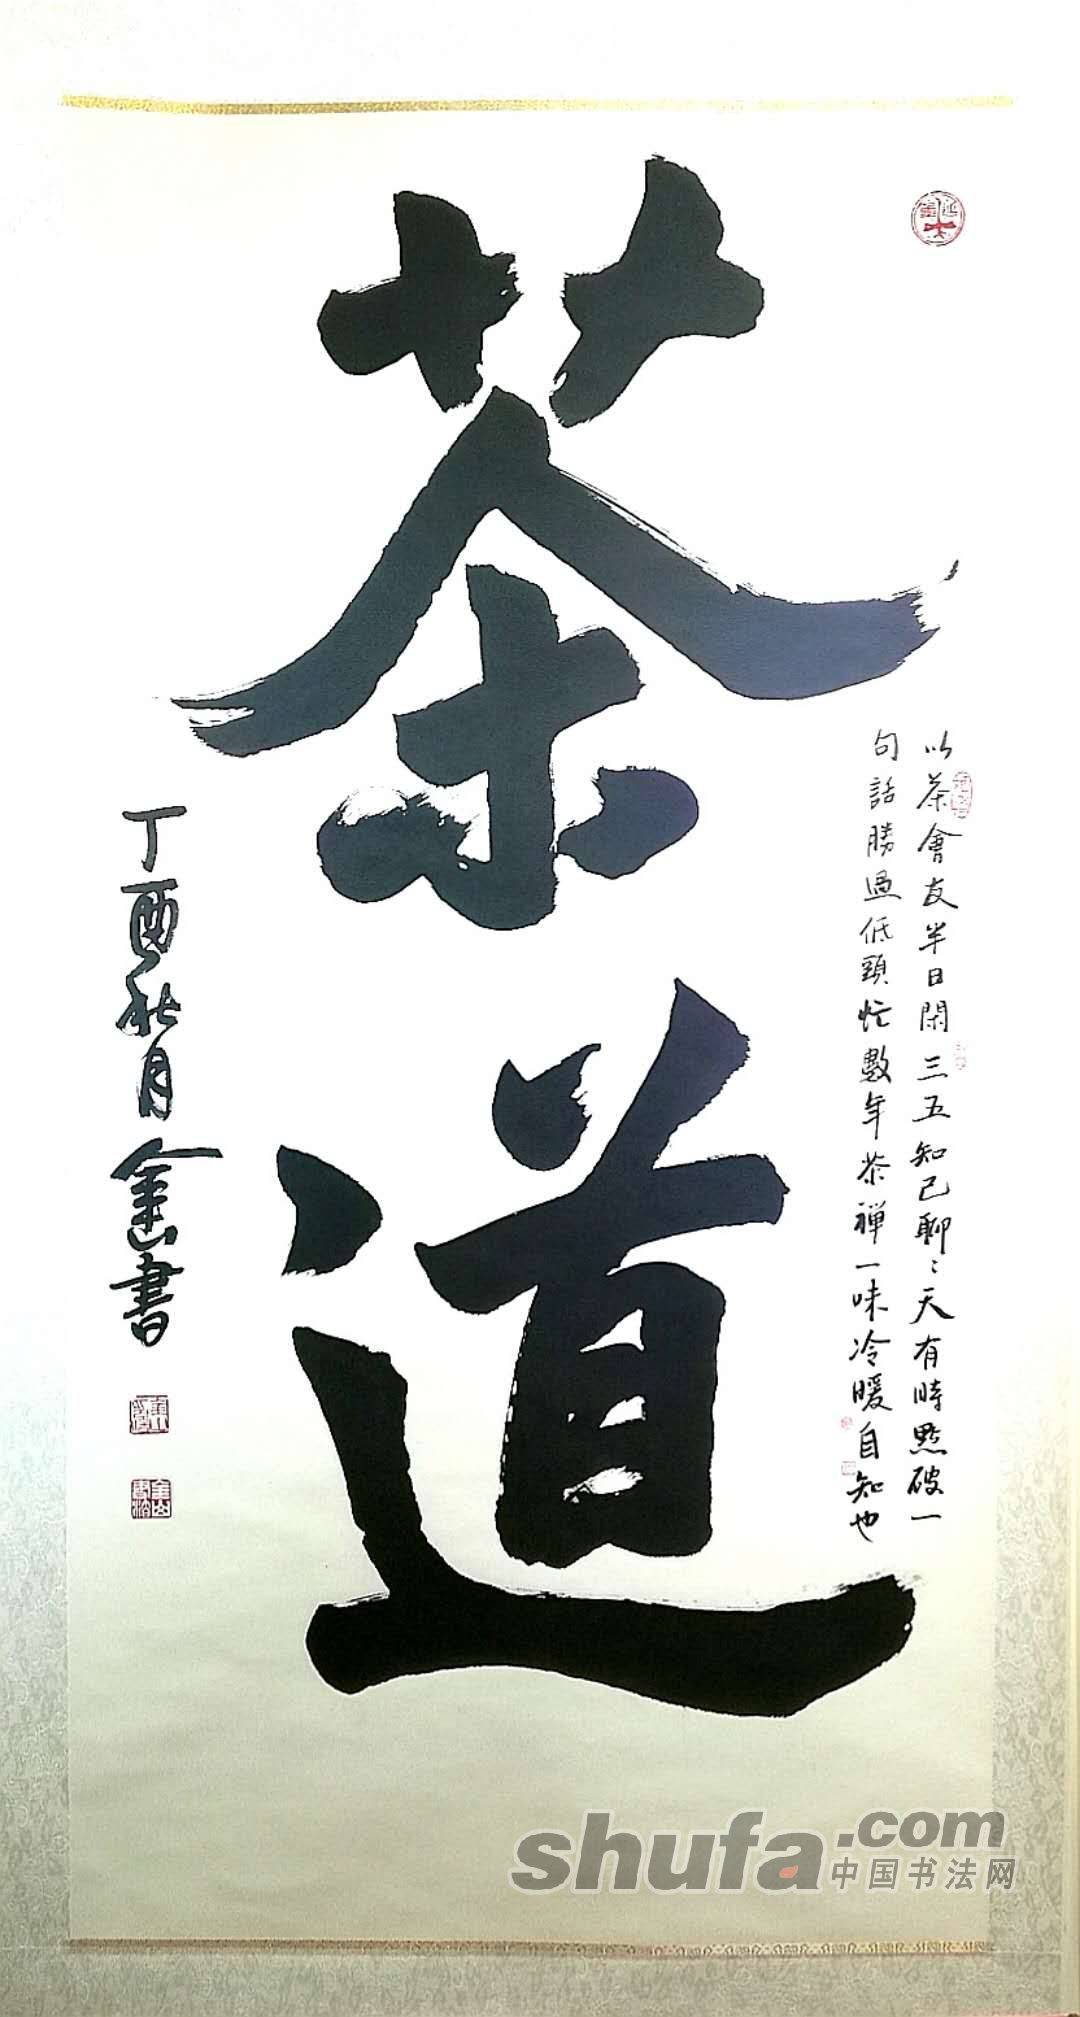 茶道
以茶會友半日閑三五知己聊〻天有時點破一
句話勝過低頭忙數年茶禅一味冷暖自知也
丁酉秋月金山書
shufa.com
中国书法网